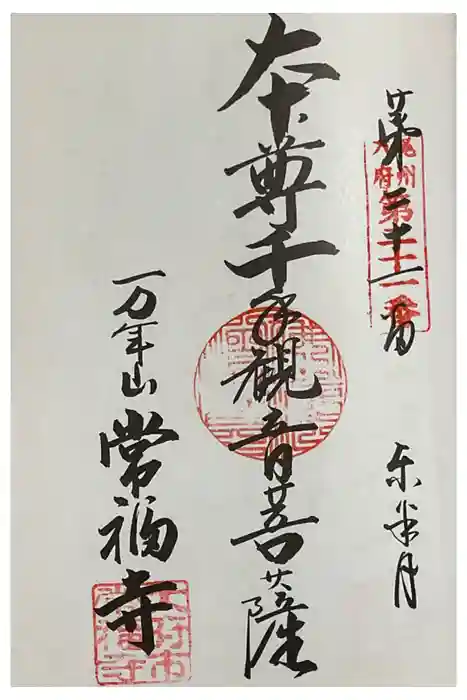 第二十一番
尾州
大府
第二十一番
半月
本尊千手観音菩薩
万年山常福寺